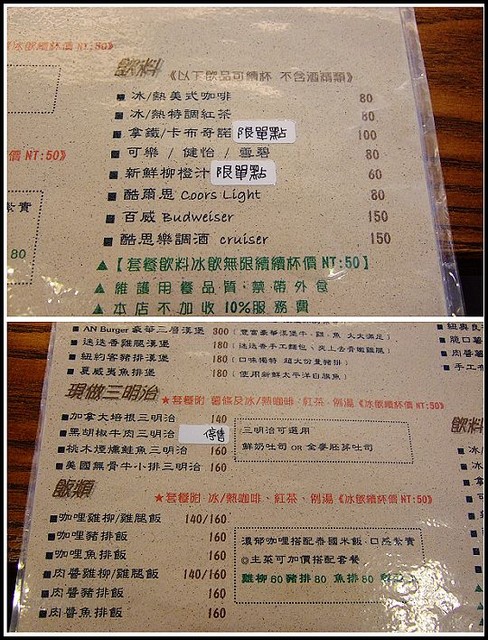 冰飲續杯價 NT:50》
飲料 《以下飲品可續杯 不含酒精類》
■ 冰/熱美式咖啡 80
■ 冰/熱特調紅茶 80
■ 拿鐵/卡布奇諾 限單點 100
■ 可樂 / 健怡 / 雪碧 80
價 NT:50》
■ 新鮮柳橙汁 限單點 60
■ 酷爾思 Coors Light 80
紮實
■ 百威 Budweiser 150
80
■ 酷思樂調酒 cruiser 150
▲【套餐飲料冰飲無限續續杯價 NT:50】
▲ 維護用餐品質,禁帶外食
▲ 本店不加收 10%服務費
■ AN Burger 豪華三層漢堡 300
■ 迷迭香雞腿漢堡 180
■ 紐約客豬排漢堡 180 (口味獨特 超大份量豬排)
■ 夏威夷魚排堡 180 (使用新鮮太平洋白旗魚)
現做三明治
★套餐附 薯條及冰/熱咖啡、紅茶、例湯《冰飲續杯價 NT:50》
■加拿大培根三明治 140
■黑胡椒牛肉三明治 停售
■桃木煙燻鮭魚三明治 160
■美國無骨牛小排三明治 160
三明治可選用
鮮奶吐司 OR 全麥胚芽吐司
飯類
★套餐附 冰/熱咖啡、紅茶、例湯《冰飲續杯價 NT:50》
■咖哩雞柳/雞腿飯 140/160
■咖哩豬排飯 160
■咖哩魚排飯 160
■肉醬雞柳/雞腿飯 140/160
■肉醬豬排飯 160
■肉醬魚排飯 160
濃郁咖哩搭配泰國米飯,口感紮實
◎主菜可加價搭配套餐
雞柳 60 豬排 80 魚排 80
飲料